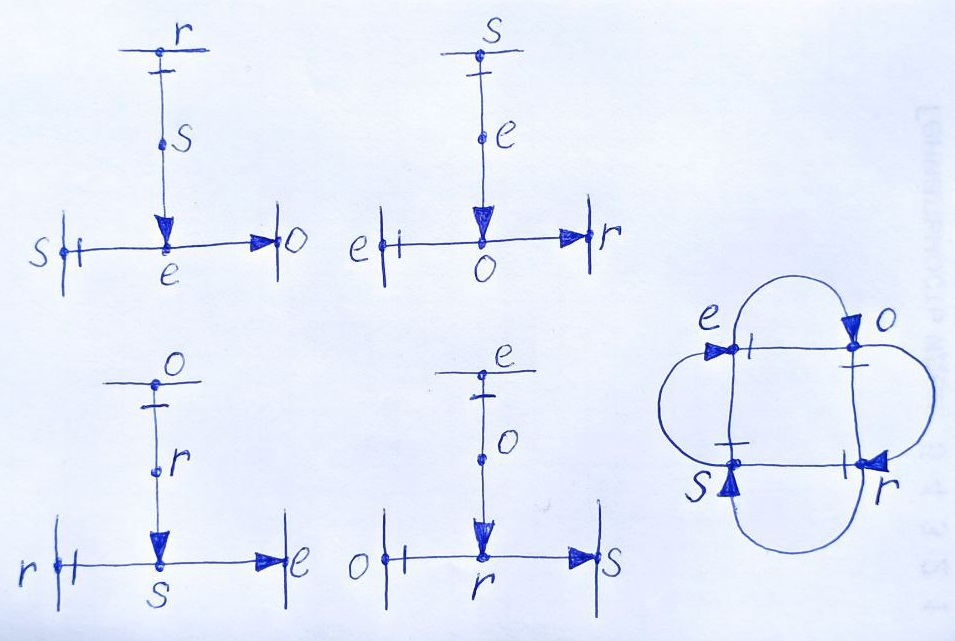 r
s
s e o
s
e
e o r
o
r
r s e
e
o
o r s
e o
s r